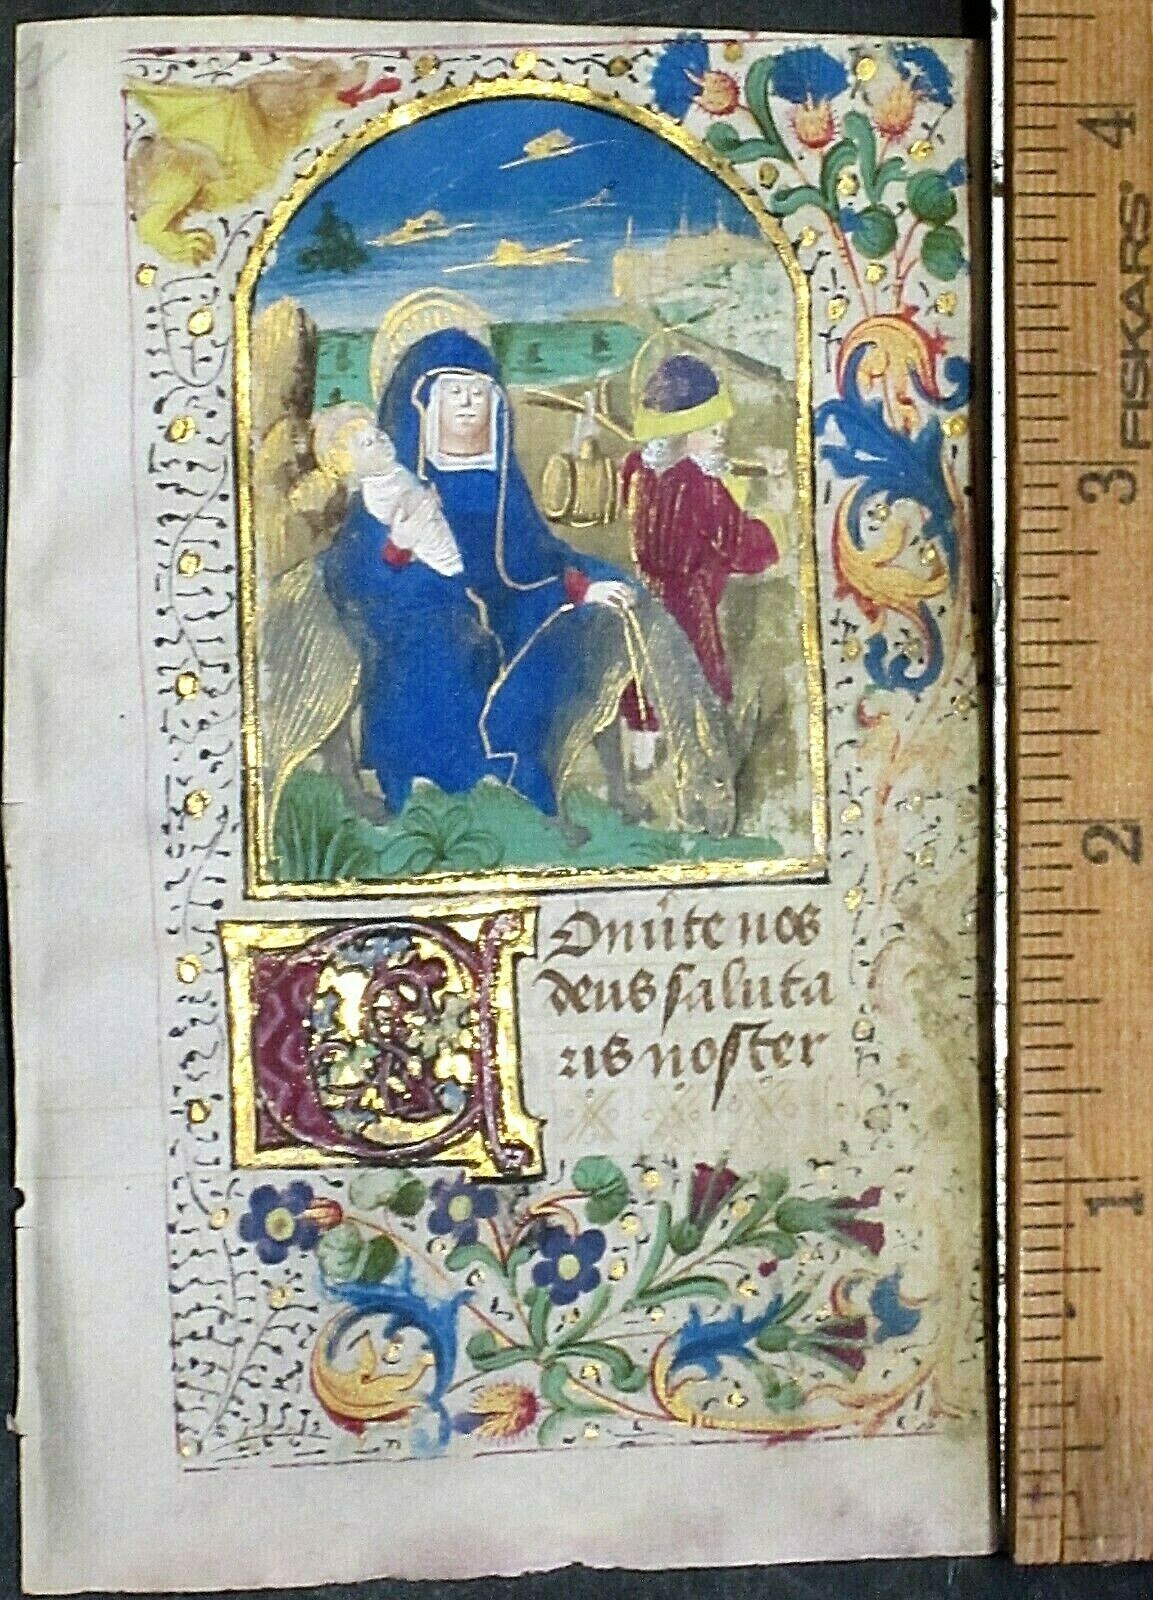 COnũte nos
deus saluta
ris noster
FISKARS®
4
3
2
1